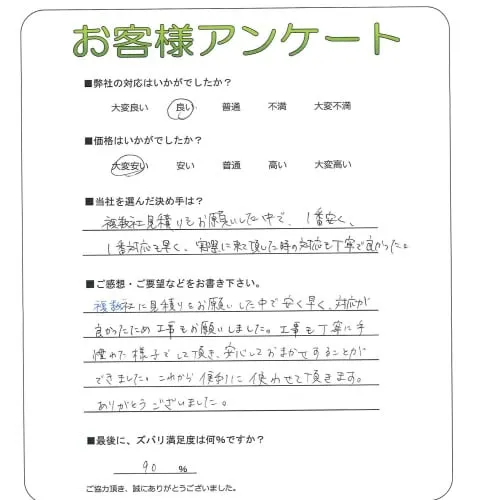 お客様アンケート
■弊社の対応はいかがでしたか？
大変良い 良い 普通 不満 大変不満
■価格はいかがでしたか？
大変安い 安い 普通 高い 大変高い
■当社を選んだ決め手は？
複数社見積りをお願いした中で、1番安く、
1番対応も早く、実際に来て頂した時の対応も丁寧で良かった。
■ご感想・ご要望などをお書き下さい。
複数社に見積りをお願いした中で安く早く、対応が
良かったため工事もお願いしました。工事も丁寧に手
慣れた様子でして頂き、安心しておまかせすることが
できました。これから便利に使わせて頂きます。
ありがとうございました。
■最後に、ズバリ満足度は何％ですか？
90 %
ご協力頂き、誠にありがとうございました。